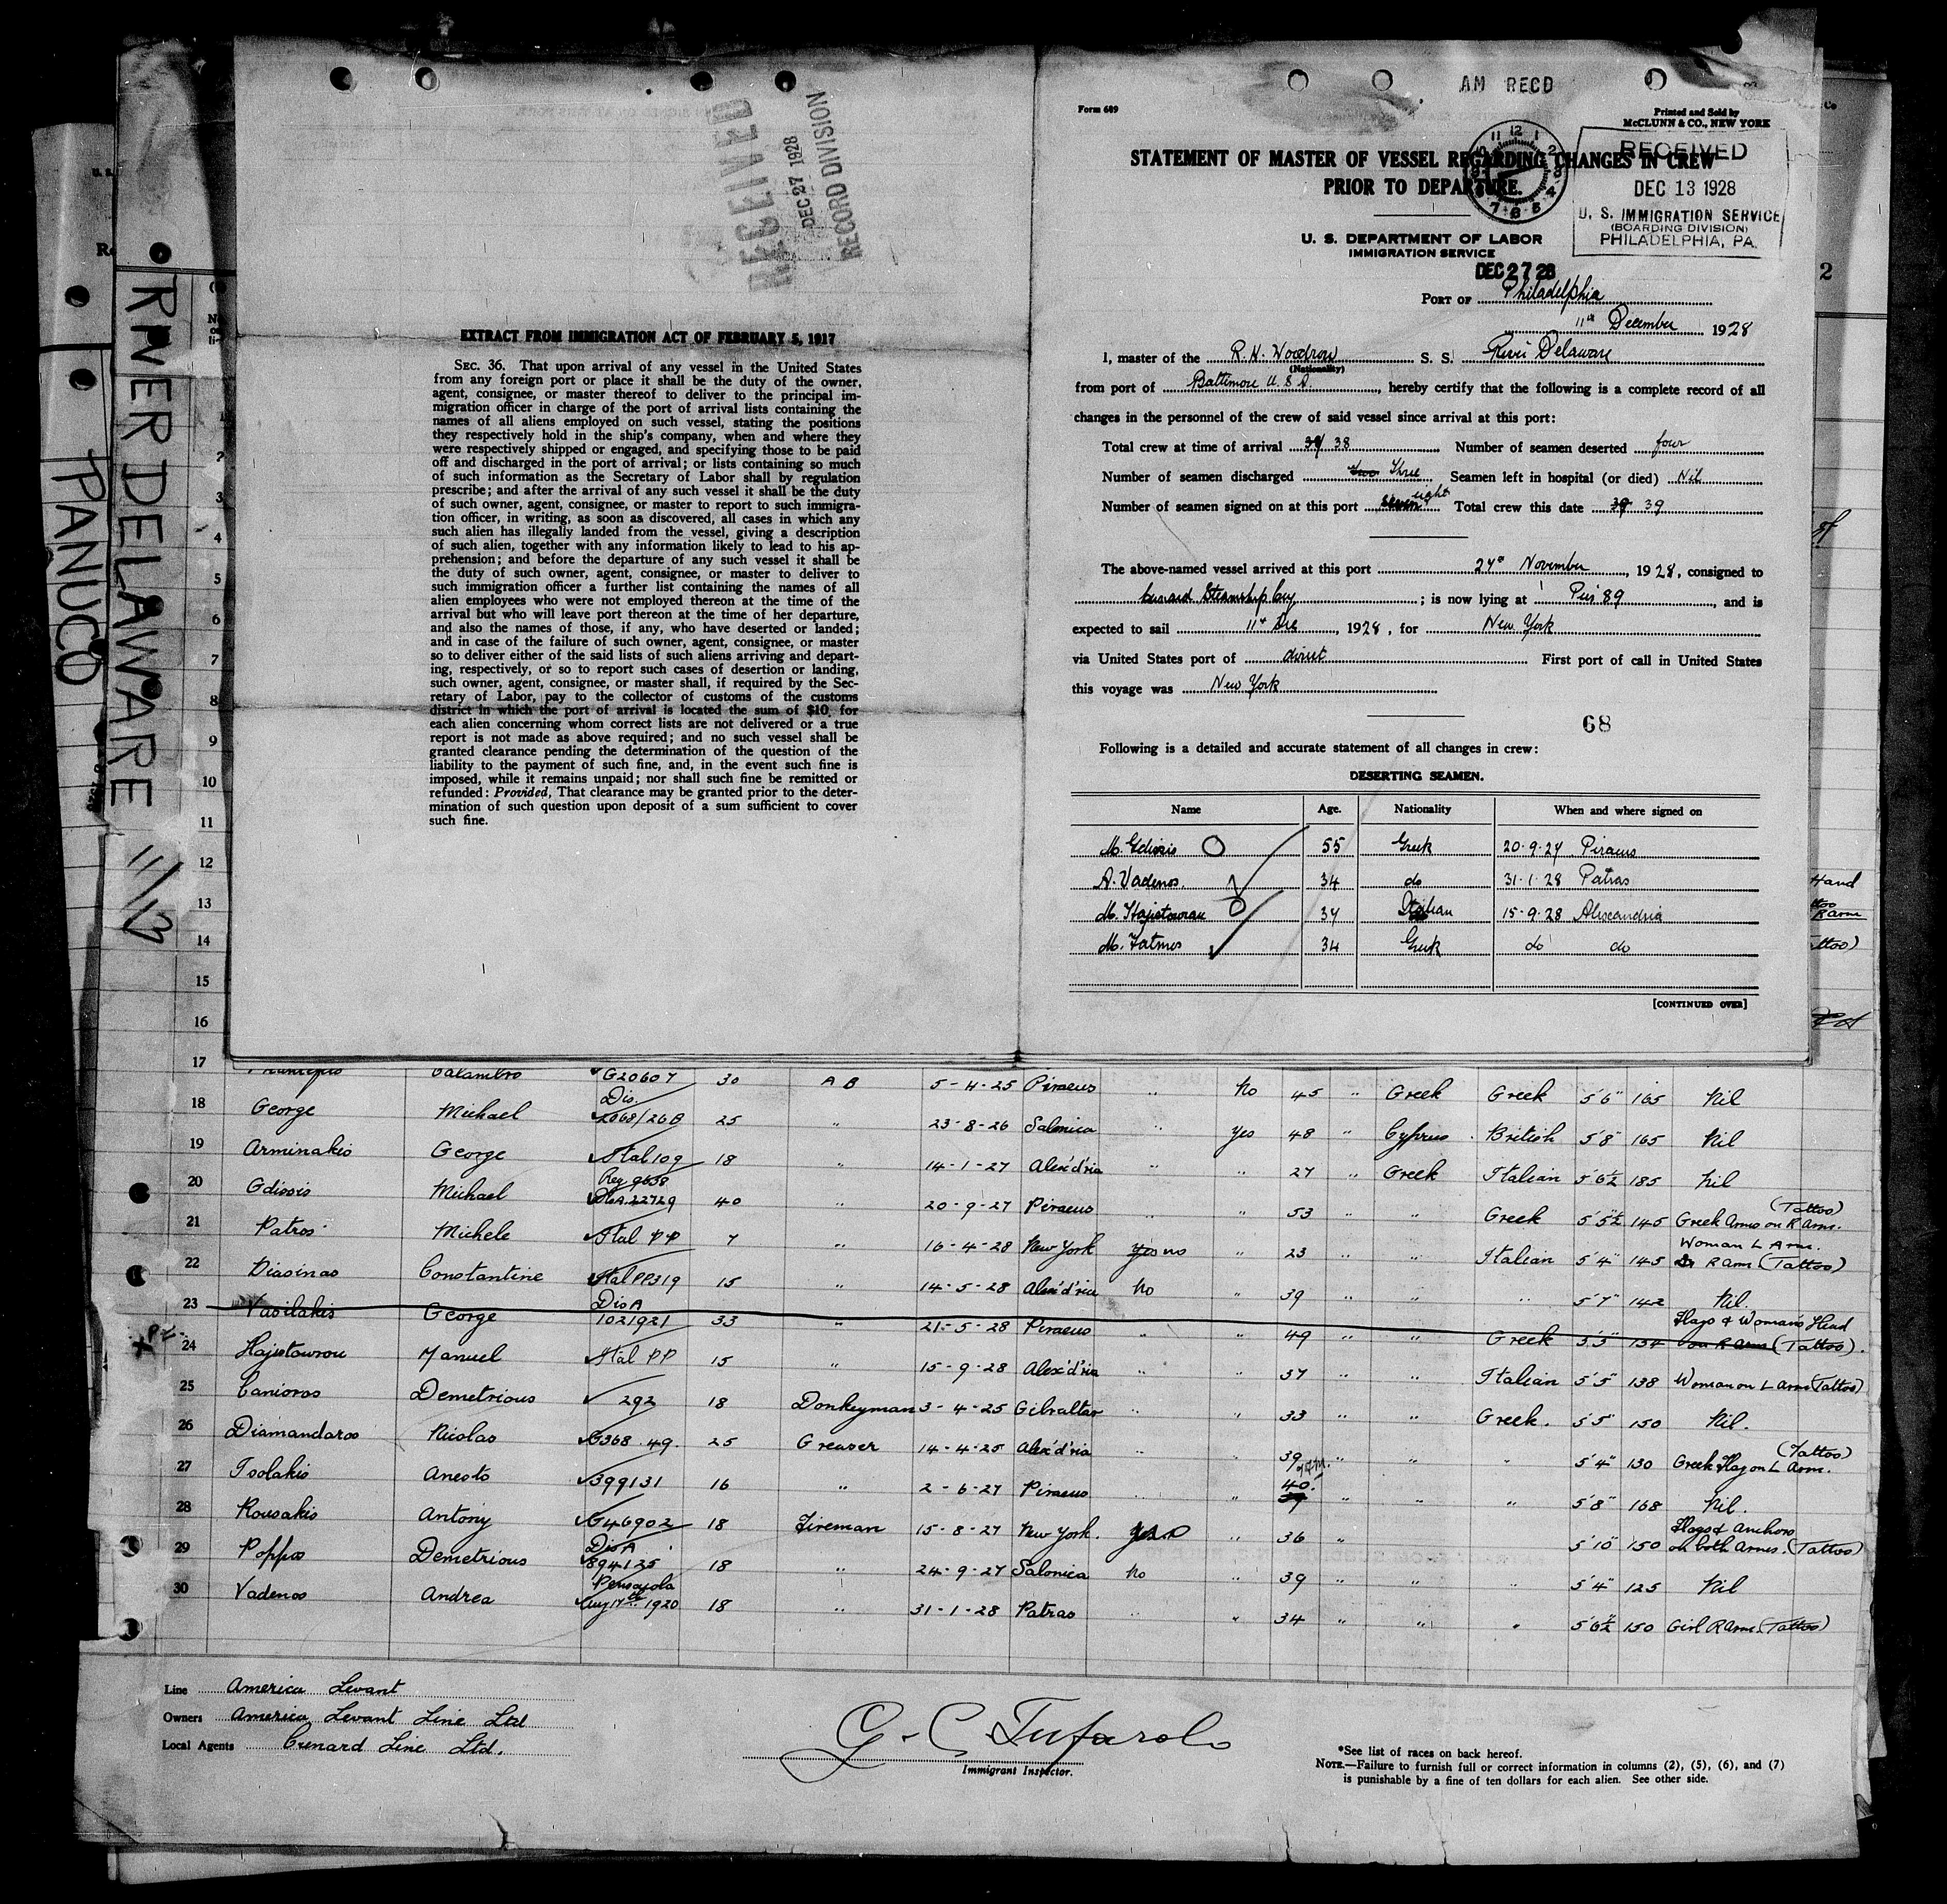 RIVER DELAWARE 11/13
PANUCO
RECEIVED
DEC 27 1928
RECORD DIVISION
EXTRACT FROM IMMIGRATION ACT OF FEBRUARY 5, 1917
SEC. 36. That upon arrival of any vessel in the United States
from any foreign port or place it shall be the duty of the owner,
agent, consignee, or master thereof to deliver to the principal im-
migration officer in charge of the port of arrival lists containing the
names of all aliens employed on such vessel, stating the positions
they respectively hold in the ship's company, when and where they
were respectively shipped or engaged, and specifying those to be paid
off and discharged in the port of arrival; or lists containing so much
of such information as the Secretary of Labor shall by regulation
prescribe; and after the arrival of any such vessel it shall be the duty
of such owner, agent, consignee, or master to report to such immigra-
tion officer, in writing, as soon as discovered, all cases in which any
such alien has illegally landed from the vessel, giving a description
of such alien, together with any information likely to lead to his ap-
prehension; and before the departure of any such vessel it shall be
the duty of such owner, agent, consignee, or master to deliver to
such immigration officer a further list containing the names of all
alien employees who were not employed thereon at the time of the
arrival but who will leave port thereon at the time of her departure,
and also the names of those, if any, who have deserted or landed;
and in case of the failure of such owner, agent, consignee, or master
so to deliver either of the said lists of such aliens arriving and depart-
ing, respectively, or so to report such cases of desertion or landing,
such owner, agent, consignee, or master shall, if required by the Sec-
retary of Labor, pay to the collector of customs of the customs
district in which the port of arrival is located the sum of $10 for
each alien concerning whom correct lists are not delivered or a true
report is not made as above required; and no such vessel shall be
granted clearance pending the determination of the question of the
liability to the payment of such fine, and, in the event such fine is
imposed, while it remains unpaid; nor shall such fine be remitted or
refunded: Provided, That clearance may be granted prior to the deter-
mination of such question upon deposit of a sum sufficient to cover
such fine.
AM RECD
Form 689
Printed and Sold by
McCLUNN & CO., NEW YORK
STATEMENT OF MASTER OF VESSEL REGARDING CHANGES IN CREW
PRIOR TO DEPARTURE.
RECEIVED
DEC 13 1928
U. S. IMMIGRATION SERVICE
(BOARDING DIVISION)
PHILADELPHIA, PA.
U. S. DEPARTMENT OF LABOR
IMMIGRATION SERVICE
DEC 27 28
PORT OF Philadelphia
11th December 1928
I, master of the R. H. Woodrow S. S. River Delaware
(Nationality)
from port of Baltimore U.S.A., hereby certify that the following is a complete record of all
changes in the personnel of the crew of said vessel since arrival at this port:
Total crew at time of arrival 38 Number of seamen deserted four
Number of seamen discharged two Three Seamen left in hospital (or died) Nil
Number of seamen signed on at this port seven eight Total crew this date 39 39
The above-named vessel arrived at this port 24th November, 1928, consigned to
Cunard Steamship Coy; is now lying at Pier 89, and is
expected to sail 11th Dec, 1928, for New York
via United States port of direct First port of call in United States
this voyage was New York
68
Following is a detailed and accurate statement of all changes in crew:
DESERTING SEAMEN.
Name Age. Nationality When and where signed on
M. Gdiosis 55 Greek 20-9-27 Piraeus
A. Vadenos. 34 do 31-1-28 Patras
M. Hajistourou 37 Italian 15-9-28 Alexandria
M. Fatmos 34 Greek do do
[CONTINUED OVER]
2
3
4
5
6
7
8
9
10
11
12
13
14
15
16
17 Galambro G20607 30 A B 5-4-25 Piraeus " No 45 " Greek Greek 5'6" 165 Nil
18 George Michael Dis. 2068/26B 25 " 23-8-26 Salonica " Yes 48 " Cyprus British 5'8" 165 Nil
19 Arminakis George Ital 109 18 " 14-1-27 Alex'd'ria " " 27 " Greek Italian 5'6½ 185 Nil
20 Gdiosis Michael Reg 9638 DisA 22729 40 " 20-9-27 Piraeus " 53 " " Greek 5'5½ 145 Greek Arms on R Arm. (Tattoo)
21 Patros Michele Ital PP 7 " 16-4-28 New York Yes no " 23 " " Italian 5'4" 145 Woman L Arm. R Arm (Tattoo)
22 Diasinos Constantine Ital PP319 15 " 14-5-28 Alex'd'ria No " 39 " " " 5'7" 142 Nil.
23 Vasilakis George Dis A 1021921 33 " 21-5-28 Piraeus " " 49 " " Greek 5'5" 134 Flags & Woman's Head on R Arm (Tattoo).
24 Hajistourou Manuel Ital PP 15 " 15-9-28 Alex'd'ria " " 37 " " Italian 5'5" 138 Woman on L Arm (Tattoo)
25 Canioros Demetrious 292 18 Donkeyman 3-4-25 Gibraltar " " 33 " " Greek. 5'5" 150 Nil.
26 Diamandaros Nicolas G368.49. 25 Greaser 14-4-25 Alex'd'ria " 39 " " " 5'4" 130 Greek Flag on L Arm. (Tattoo)
27 Tsolakis Anesto 399131 16 " 2-6-27 Piraeus " " 40. 39 " " " 5'8" 168 Nil.
28 Rousakis Antony G46902 18 Fireman 15-8-27 New York. " 36 " " 5'10" 150 Flags & Anchors on both Arms. (Tattoo)
29 Poppos Demetrious Dis A 894125 18 " 24-9-27 Salonica No " 39 " " " 5'4" 125 Nil
30 Vadenos Andrea Pensacola Aug 17th 1920 18 " 31-1-28 Patras " " 34 " " " 5'6½" 150 Girl R Arm. (Tattoo)
Line America Levant
Owners America Levant Line Ltd
Local Agents Cunard Line Ltd.
G. C. Tufarolo
Immigrant Inspector.
*See list of races on back hereof.
NOTE.—Failure to furnish full or correct information in columns (2), (5), (6), and (7)
is punishable by a fine of ten dollars for each alien. See other side.